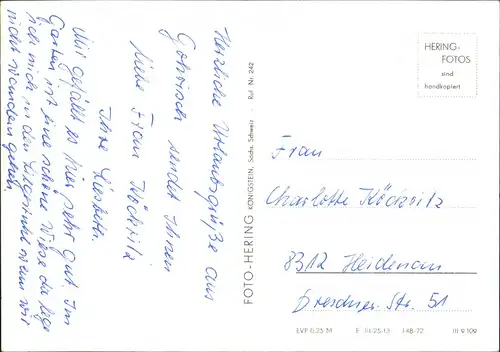 Herzliche Urlaubsgrüße aus
Gohrisch sendet Ihnen
liebe Frau Köckritz
Ihre Liesbeth.
Mir gefällt es hier sehr gut. Im
Garten ist eine schöne Wiese da lege
ich mich in den Liegestuhl wenn wir
nicht wandern gehen.
FOTO-HERING KÖNIGSTEIN, Sächs. Schweiz - Ruf Nr. 242
HERING-
FOTOS
sind
handkopiert
Frau
Charlotte Köckritz
8312 Heidenau
Dresdner Str. 51
EVP 0,25 M E III-25-13 J 48-72 III 9 109